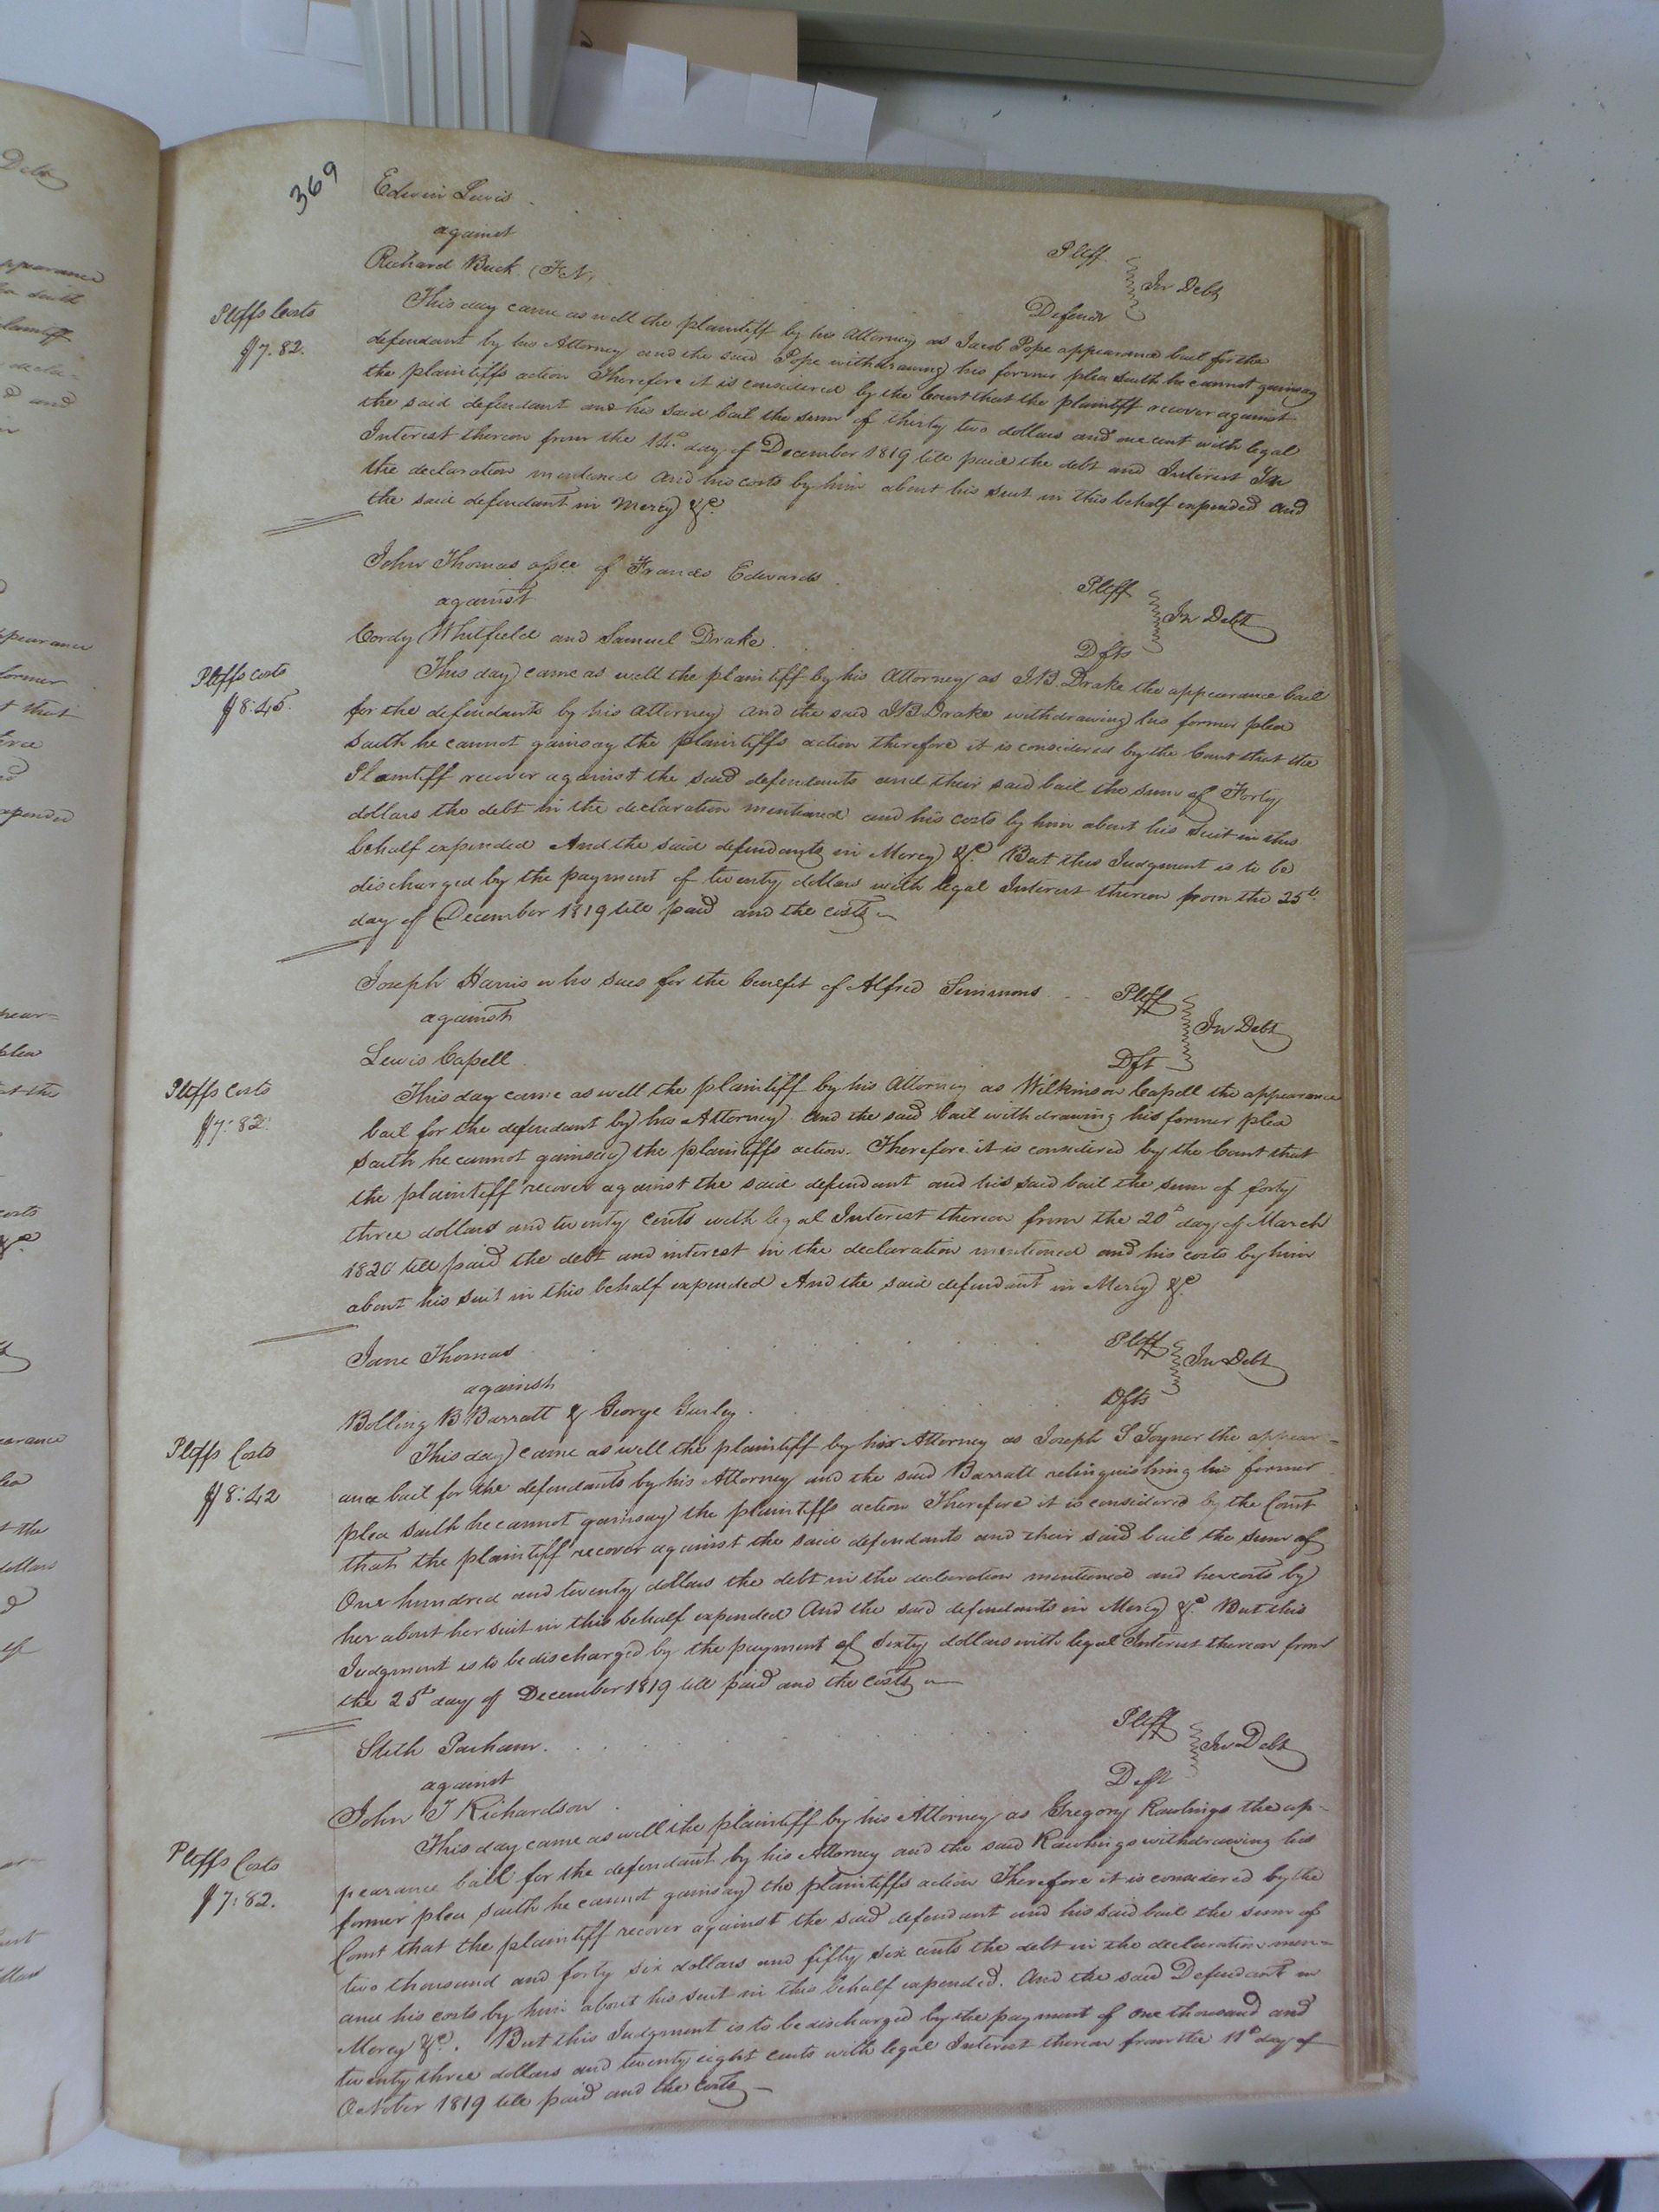 369
Edwin Lewis
Pltff
against
In Debt
Richard Buck (FN)
Defendt
Pltffs Costs
$7.82.
This day came as well the plaintiff by his Attorney as Jacob Pope appearance bail for the
defendant by his Attorney and the said Pope withdrawing his former plea saith he cannot gainsay
the plaintiffs action Therefore it is considered by the Court that the plaintiff recover against
the said defendant and his said bail the sum of thirty two dollars and one cent with legal
Interest thereon from the 14th day of December 1819 till paid the debt and Interest In
the declaration mentioned and his costs by him about his suit in this behalf expended and
the said defendant in mercy &c.
John Thomas assee of Frances Edwards
Pltff
against
In Debt
Cordy Whitfield and Samuel Drake
Dfts
Pltffs costs
$8:45.
This day came as well the plaintiff by his Attorney as J.B. Drake the appearance bail
for the defendants by his attorney and the said J B Drake withdrawing his former plea
saith he cannot gainsay the plaintiffs action therefore it is considered by the Court that the
Plaintiff recover against the said defendants and their said bail the sum of Forty
dollars the debt in the declaration mentioned and his costs by him about his suit in this
behalf expended And the said defendants in Mercy &c. But this Judgment is to be
discharged by the payment of twenty dollars with legal Interest thereon from the 25th
day of December 1819 till paid and the costs
Joseph Harris who sues for the benefit of Alfred Simmons
Pltff
against
In Debt
Lewis Capell
Dft
Pltffs Costs
$7:82.
This day came as well the plaintiff by his Attorney as Wilkinson Capell the appearance
bail for the defendant by his Attorney and the said bail withdrawing his former plea
saith he cannot gainsay the plaintiffs action. Therefore it is considered by the Court that
the plaintiff recover against the said defendant and his said bail the sum of forty
three dollars and twenty cents with legal Interest thereon from the 20th day of March
1820 till paid the debt and interest in the declaration mentioned and his costs by him
about his suit in this behalf expended And the said defendant in Mercy &c.
Jane Thomas
Pltff
against
In Debt
Bolling B Barratt & George Gurley
Dfts
Pltffs Costs
$8:42
This day came as well the plaintiff by her Attorney as Joseph S Joyner the appear=
ance bail for the defendants by his Attorney and the said Barratt relinquishing his former
plea saith he cannot gainsay the plaintiffs action Therefore it is considered by the Court
that the plaintiff recover against the said defendants and their said bail the sum of
One hundred and twenty dollars the debt in the declaration mentioned and her costs by
her about her suit in this behalf expended And the said defendants in Mercy &c. But this
Judgment is to be discharged by the payment of Sixty dollars with legal Interest thereon from
the 25th day of December 1819 till paid and the costs
Stith Parham.
Pltff
against
In Debt
John T Richardson
Deft
Pltffs Costs
$7:82.
This day came as well the plaintiff by his Attorney as Gregory Rawlings the ap=
pearance bail for the defendant by his Attorney and the said Rawlings withdrawing his
former plea saith he cannot gainsay the plaintiffs action Therefore it is considered by the
Court that the plaintiff recover against the said defendant and his said bail the sum of
two thousand and forty six dollars and fifty six cents the debt in the declaration men=
and his costs by him about his suit in this behalf expended. And the said Defendant in
Mercy &c. But this Judgment is to be discharged by the payment of one thousand and
twenty three dollars and twenty eight cents with legal Interest thereon from the 11th day of
October 1819 till paid and the costs